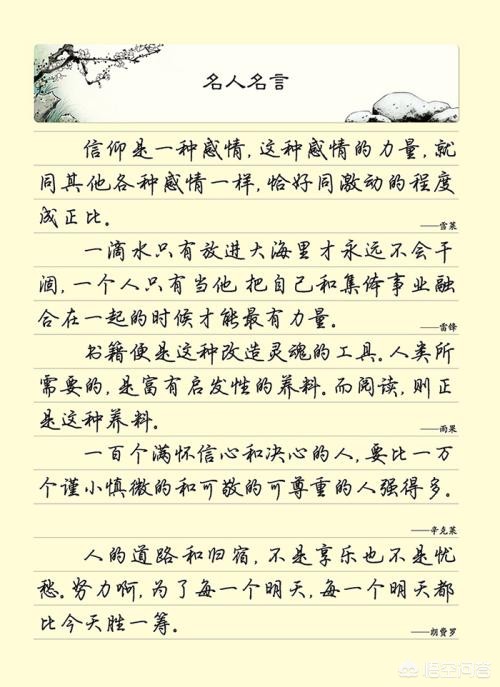 名人名言
信仰是一种感情,这种感情的力量,就
同其他各种感情一样,恰好同激动的程度
成正比。
——雪莱
一滴水只有放进大海里才永远不会干
涸,一个人只有当他把自己和集体事业融
合在一起的时候才能最有力量。
——雷锋
书籍便是这种改造灵魂的工具。人类所
需要的,是富有启发性的养料。而阅读,则正
是这种养料。
——雨果
一百个满怀信心和决心的人,要比一万
个谨小慎微的和可敬的可尊重的人强得多。
——辛克莱
人的道路和归宿,不是享乐也不是忧
愁。努力啊,为了每一个明天,每一个明天都
比今天胜一筹。
——胡费罗
悟空问答